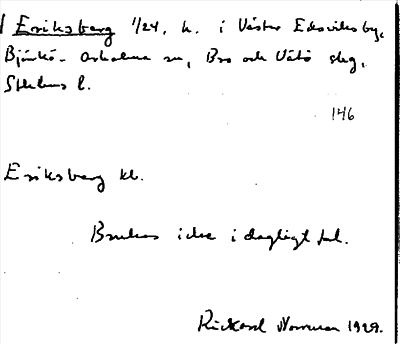 Eriksberg 1/24, h. i Väster Edsviks by,
Björkö-Arholma sn, Bro och Vätö skg,
Sthlms l.
146
Eriksberg
Brukas icke i dagligt tal.
Rickard Norman 1929.